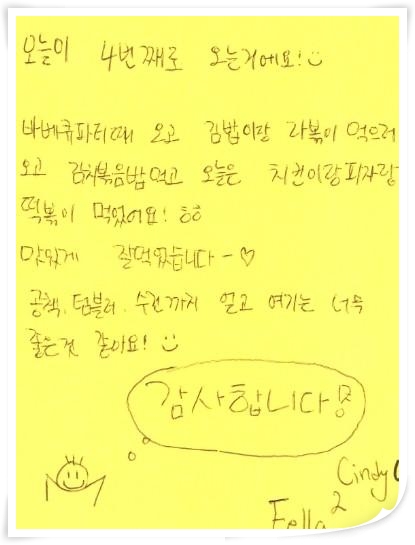 오늘이 4번째로 오는거에요!
바베큐파티때 오고 김밥이랑 라볶이 먹으러
오고 김치볶음밥먹고 오늘은 치킨이랑피자랑
떡볶이 먹었어요! ㅎㅎ
맛있게 잘먹었습니다~♡
공책, 텀블러, 수건까지 얻고 여기는 너무
좋은것 같아요!
감사합니다
Cindy
Fella 2